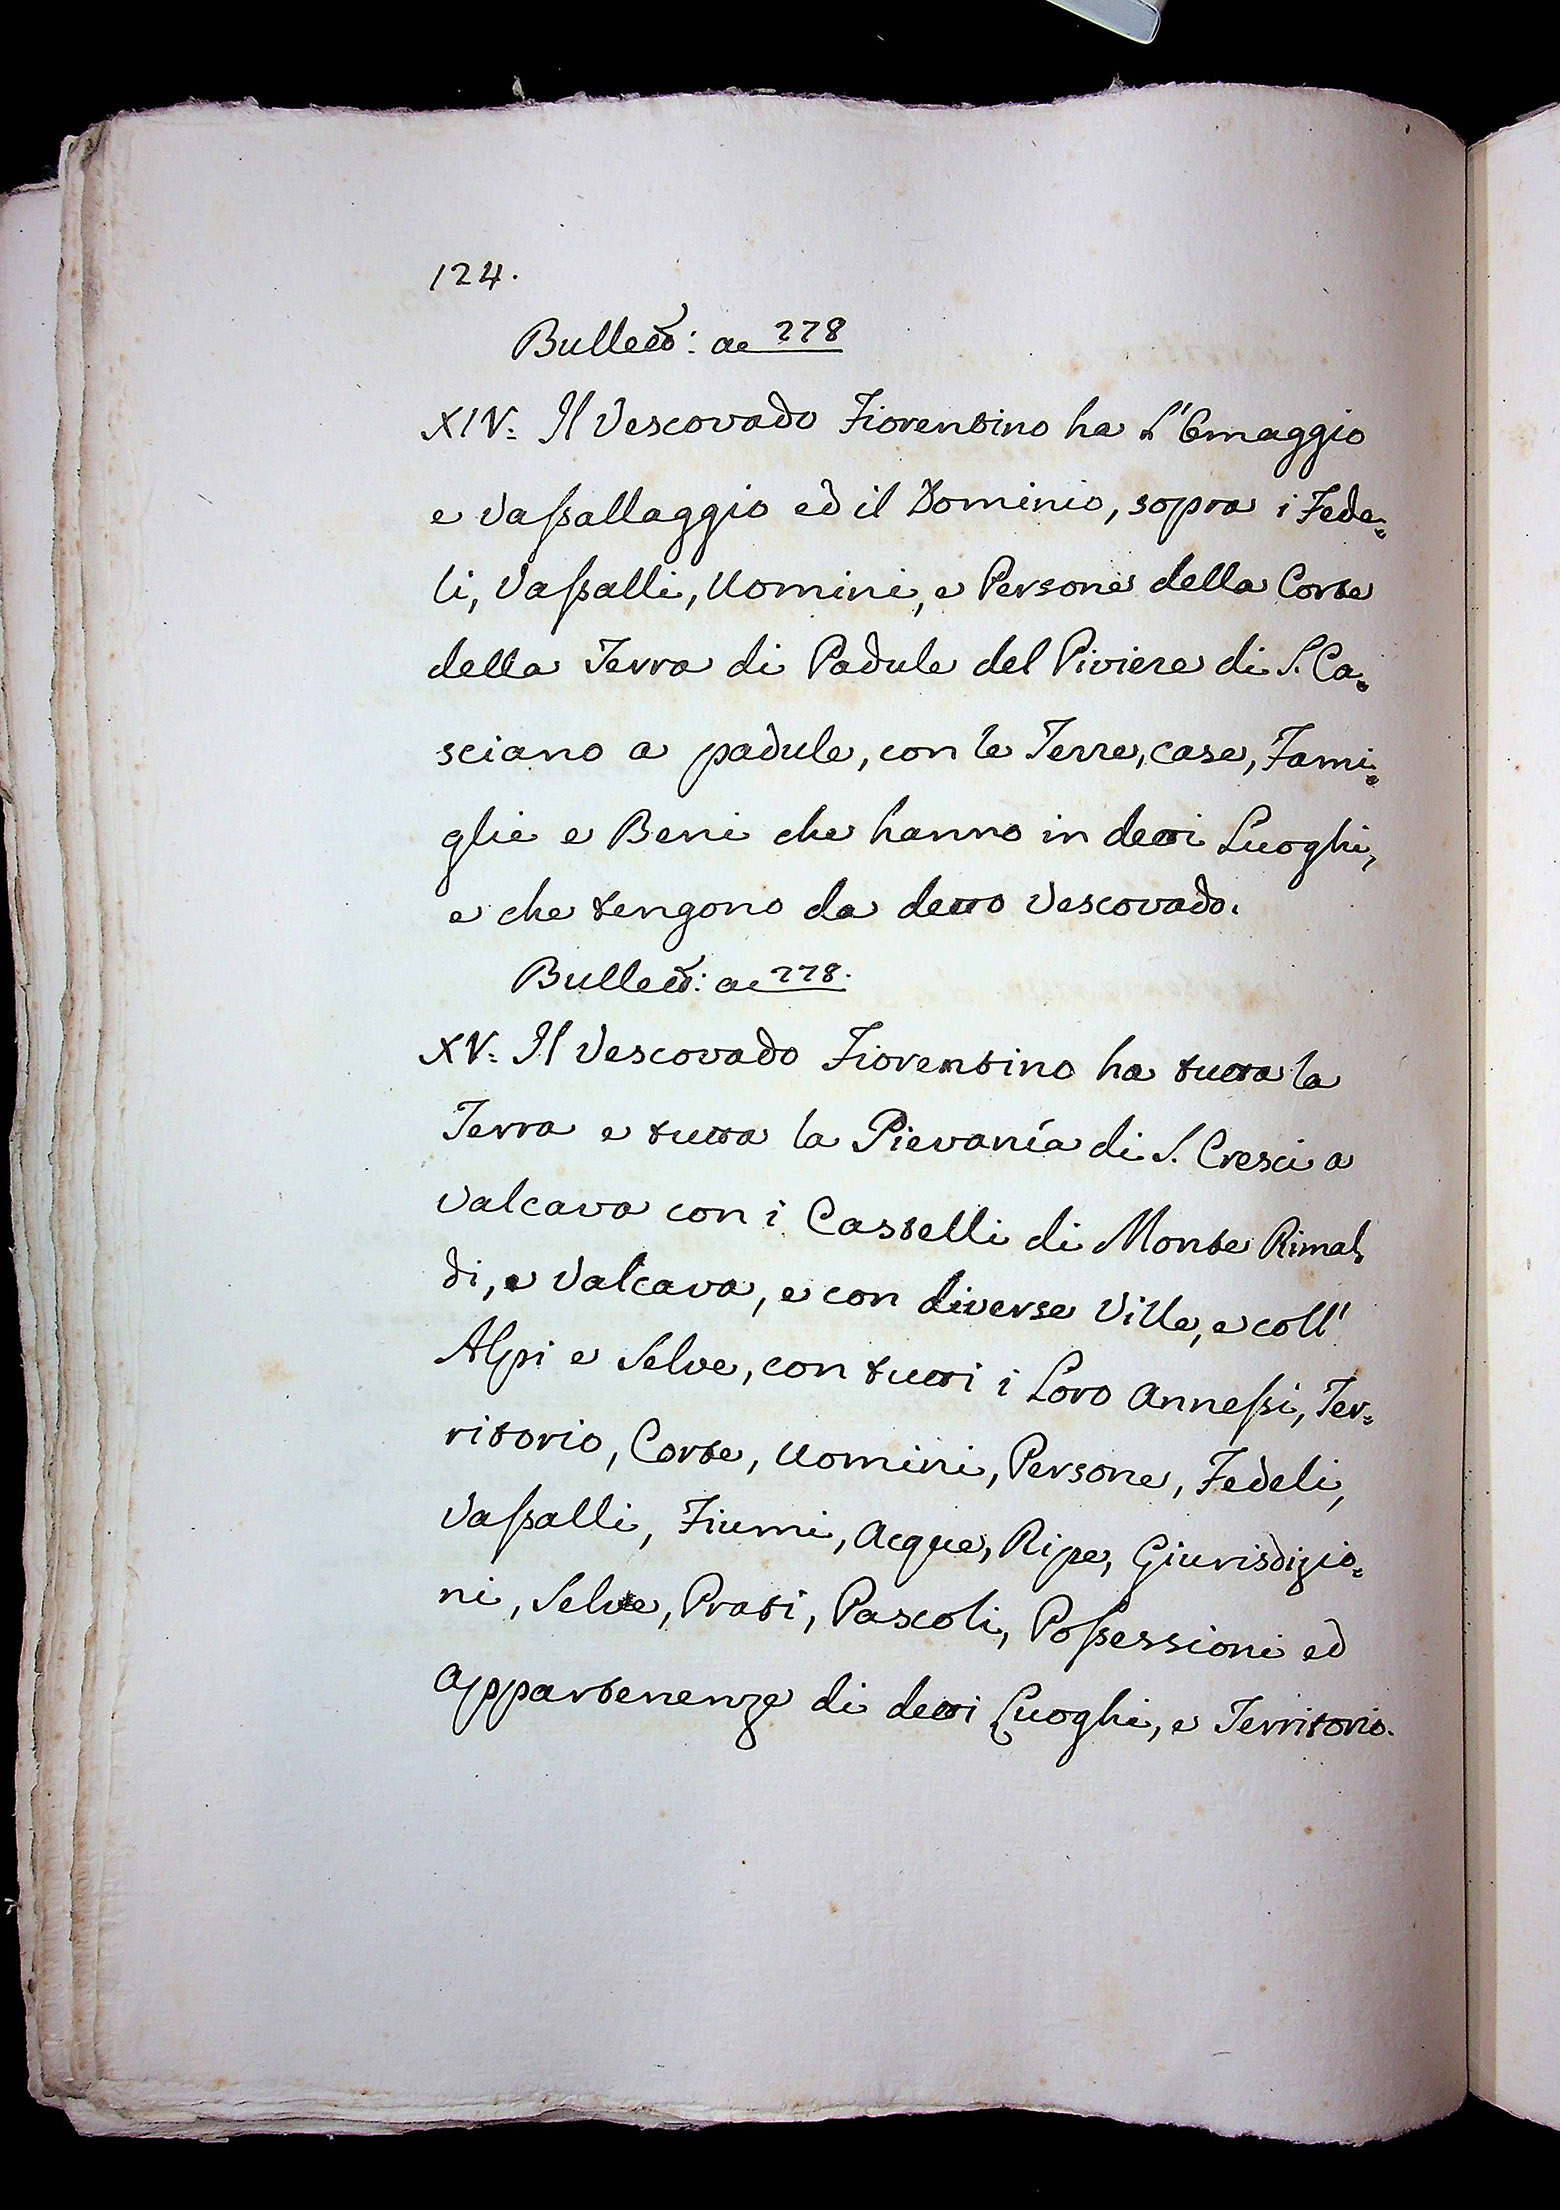 124.
Bullett: a 278
XIV: Il Vescovado Fiorentino ha L'Omaggio
e Vassallaggio ed il Dominio, sopra i Fede=
li, Vassalli, Uomini, e Persone della Corte
della Terra di Padule del Piviere di S. Ca=
sciano a padule, con le Terre, case, Fami=
glie e Beni che hanno in detti Luoghi,
e che tengono da detto Vescovado.
Bullett: a 278.
XV: Il Vescovado Fiorentino ha tutta la
Terra e tutta la Pievanía di S. Cresci a
Valcava con i Castelli di Monte Rimal,
di, e Valcava, e con diverse Ville, e coll'
Alpi e Selve, con tutti i Loro Annessi, Ter=
ritorio, Corte, Uomini, Persone, Fedeli,
Vassalli, Fiumi, Acque, Ripe, Giurisdizio=
ni, Selve, Prati, Pascoli, Possessioni ed
Appartenenze di detti Luoghi, e Territorio.